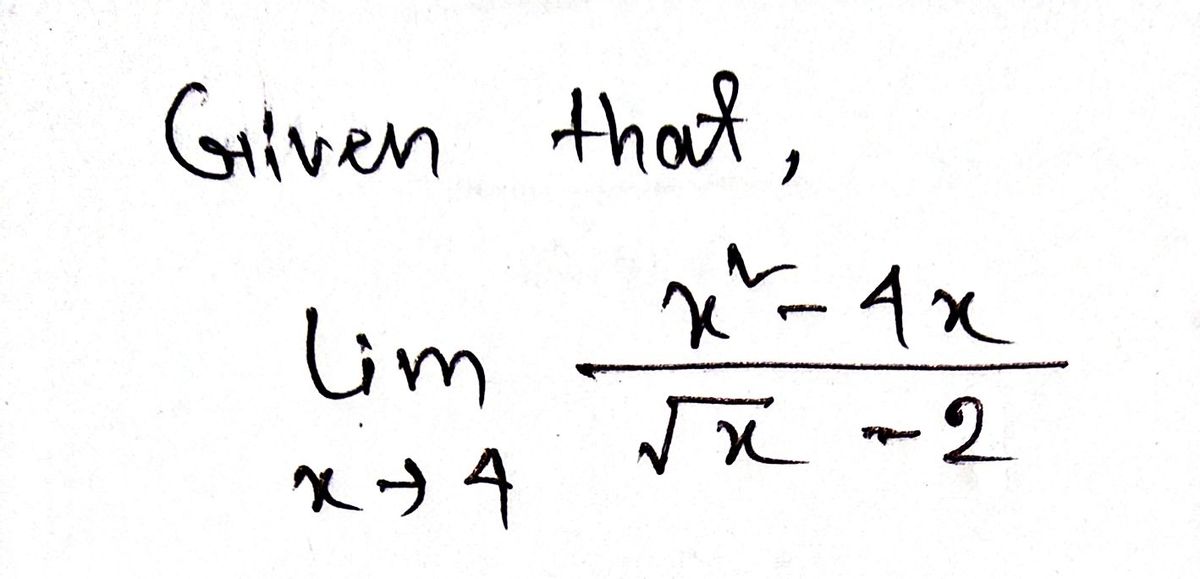 Given that,
lim x² - 4x
x → 4 √x - 2